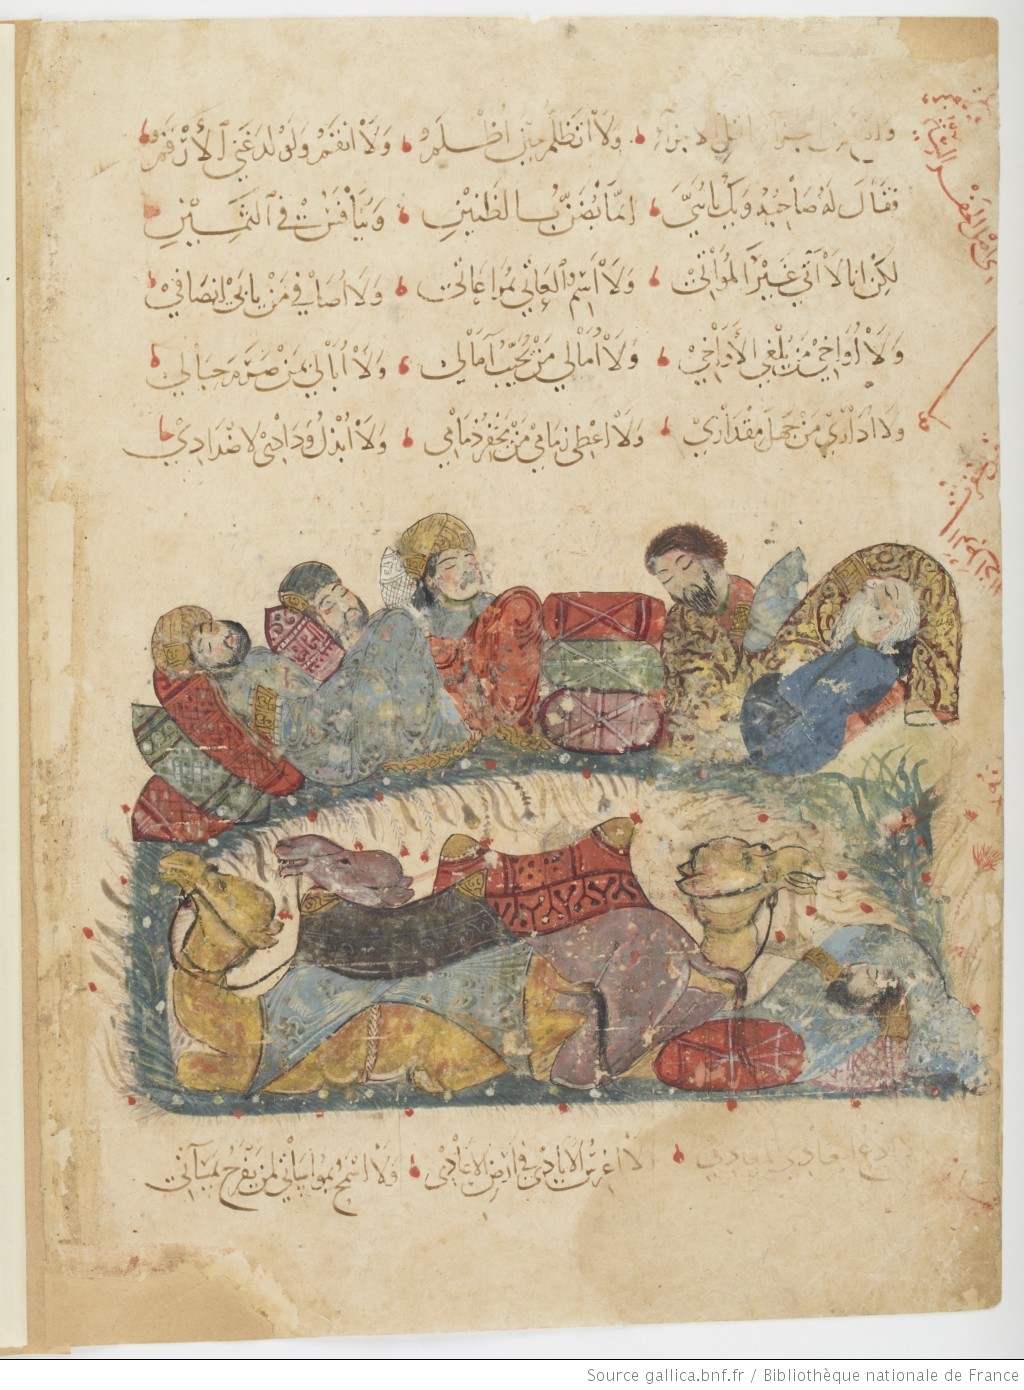 ولا اتظلم حين اظلم ولا انقم ولو لدغني الارقم
فقال له صاحبه ويك يا بني انما يضن بالضنين وينافس في الثمين
لكن انا لا آتي غير المواتي ولا اسم العاتي بمراعاتي ولا اصافي من يابى انصافي
ولا اواخي من يلغي الاواخي ولا امالي من يخيب آمالي ولا ابالي بمن صرم حبالي
ولا اداري من جهل مقداري ولا اعطي زمامي من يخفر ذمامي ولا ابذل ودادي لاضدادي
ولا ادع ايعادي للمعادي ولا اغرس الايادي في ارض الاعادي ولا اسمح بمواساتي لمن يفرح بمساآتي
Source gallica.bnf.fr / Bibliothèque nationale de France